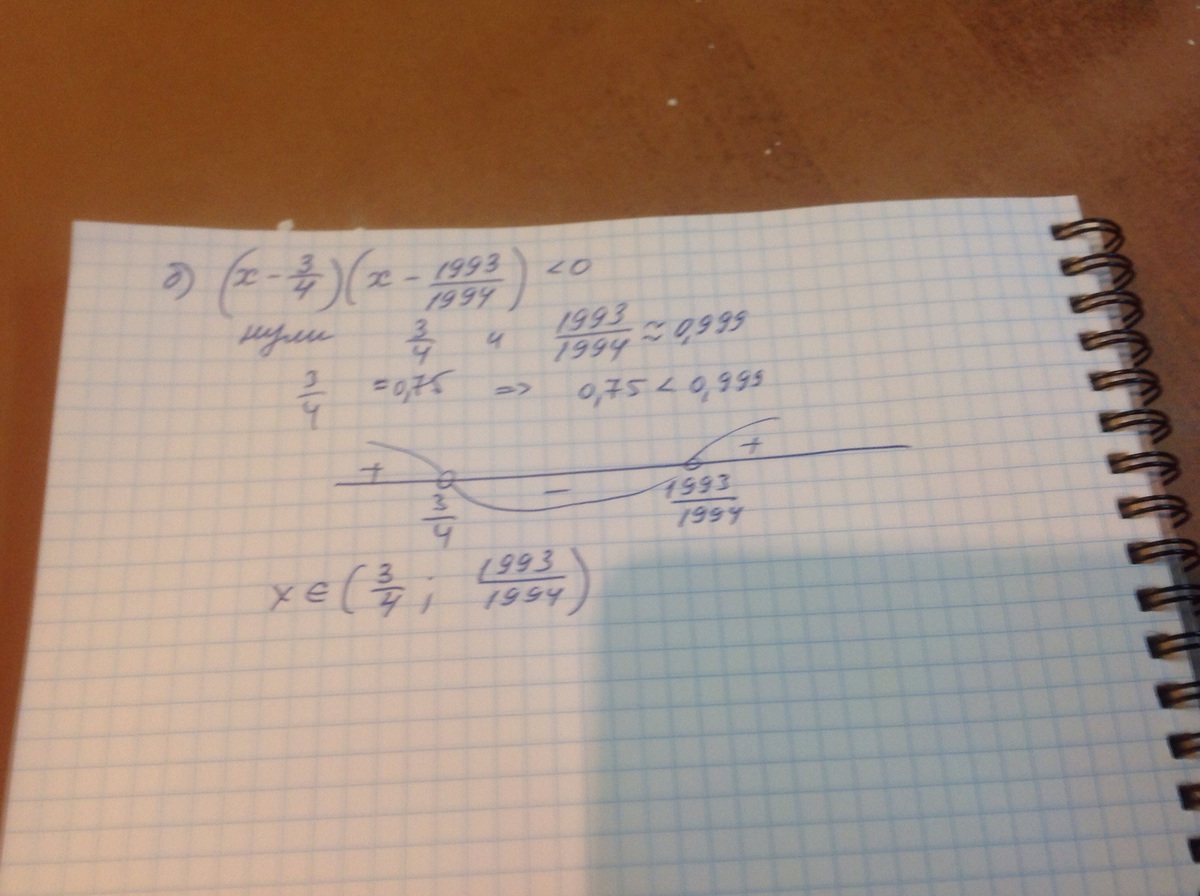 б) (x - 3/4)(x - 1993/1994) < 0
нули 3/4 и 1993/1994 ≈ 0,999
3/4 = 0,75 => 0,75 < 0,999
+ - +
3/4 1993/1994
x ∈ (3/4 ; 1993/1994)